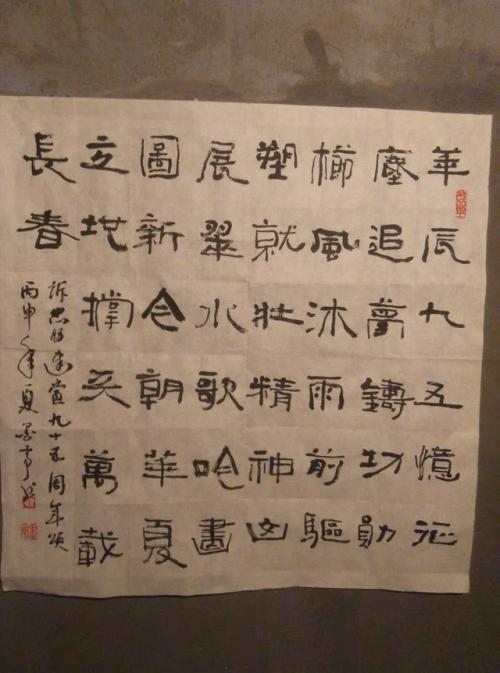 華辰九五憶征
塵追夢鑄功勛
櫛風沐雨前驅
塑就壯精神山
展翠水歌吟畫
圖新今朝華夏
立地撐天萬載
長春
訴衷情建黨九十五周年頌
丙申年夏